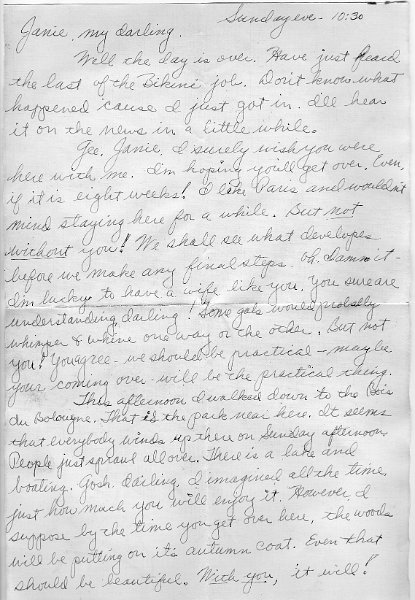 Sunday eve - 10:30
Janie, my darling.
Well the day is over. Have just heard
the last of the Bikini job. Don't know what
happened 'cause I just got in. I'll hear
it on the news in a little while.
Gee, Janie, I surely wish you were
here with me. I'm hoping you'll get over. Even,
if it is eight weeks! I like Paris and wouldn't
mind staying here for a while. But not
without you! We shall see what developes
before we make any final steps. Oh, Damn it -
I'm lucky to have a wife like you. You sure are
understanding, darling! Some gals would probably
whimper & whine one way or the other. But not
you! You agree - we should be practical - maybe
your coming over - will be the practical thing.
This afternoon I walked down to the Bois
du Bologne. That is the park near here. It seems
that everybody winds up there on Sunday afternoon.
People just sprawl all over. There is a lake and
boating. Gosh, darling, I imagined all the time,
just how much you will enjoy it. However I
suppose by the time you get over here, the woods
will be putting on it's autumn coat. Even that
should be beautiful. With you, it will!